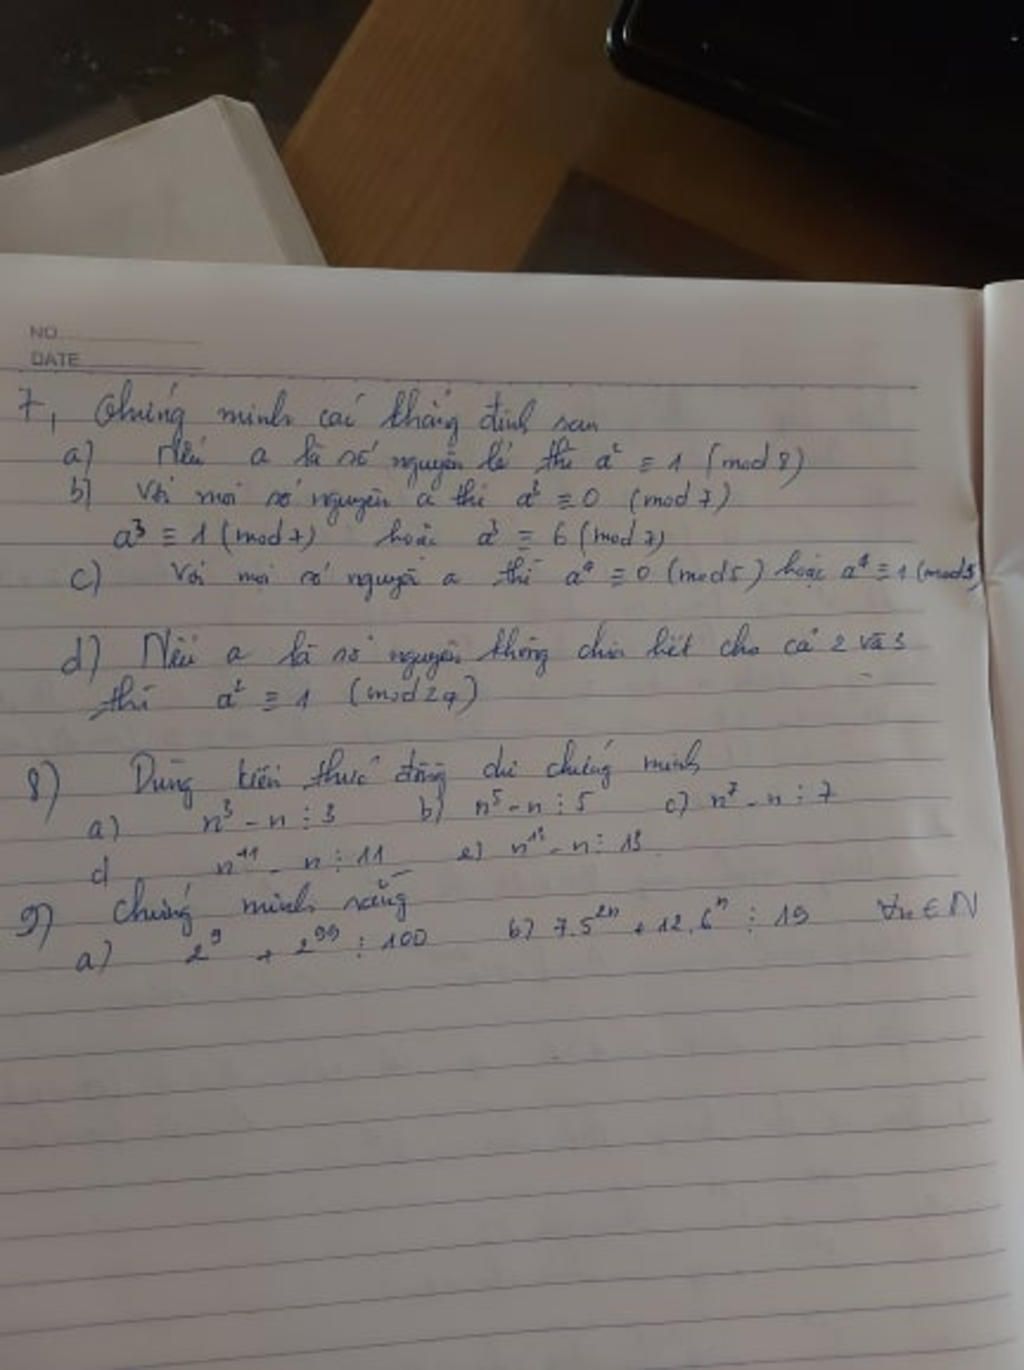 NO
DATE
7, Chứng minh các khẳng định sau
a) Nếu a là số nguyên lẻ thì a² ≡ 1 (mod 8)
b) Với mọi số nguyên a thì a³ ≡ 0 (mod 7)
a³ ≡ 1 (mod 7) hoặc a³ ≡ 6 (mod 7)
c) Với mọi số nguyên a thì a⁴ ≡ 0 (mod 5) hoặc a⁴ ≡ 1 (mod 5)
d) Nếu a là số nguyên không chia hết cho cả 2 và 3
thì a² ≡ 1 (mod 24)
8) Dùng kiến thức đồng dư chứng minh
a) n³ - n ⋮ 3 b) n⁵ - n ⋮ 5 c) n⁷ - n ⋮ 7
d n¹¹ - n ⋮ 11 e) n¹³ - n ⋮ 13
9) Chứng minh rằng
a) 2⁹ + 2⁹⁹ ⋮ 100 b) 7.5²ⁿ + 12.6ⁿ ⋮ 19 ∀n ∈ N